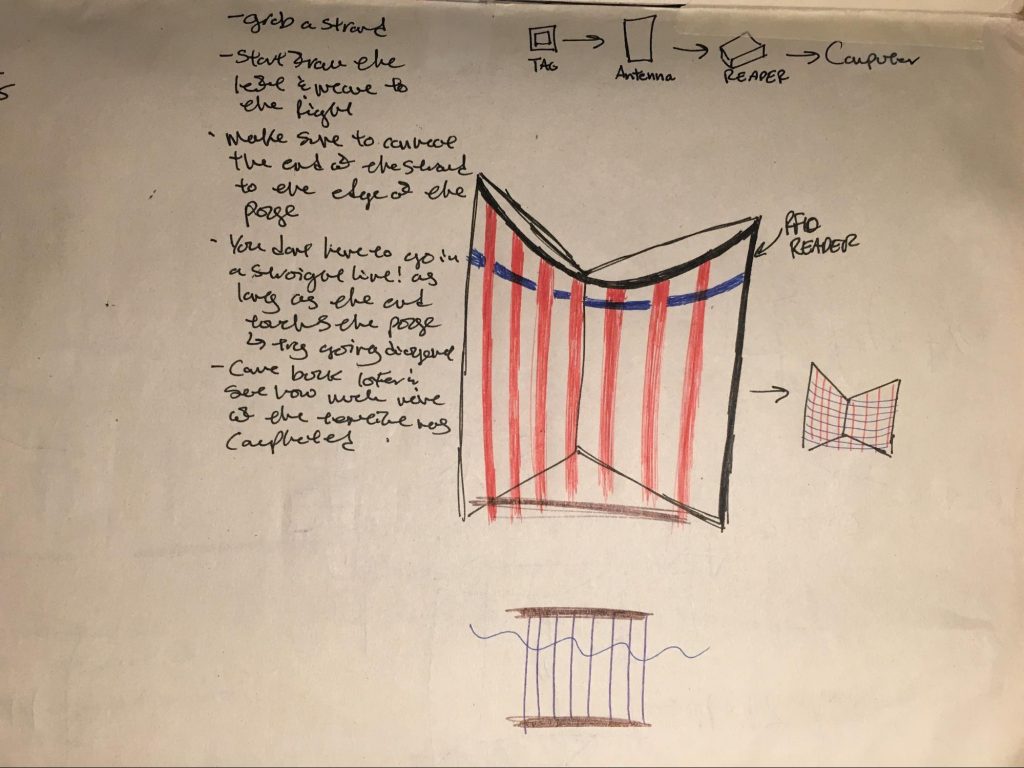 - grab a strand
- Start from the
left & weave to
the right
• make sure to connect
the end of the strand
to the edge of the
page
• You dont have to go in
a straight line! as
long as the end
touches the page
↳ try going diagonal
- Come back later &
see how much more
of the textile was
Completed
TAG → Antenna → READER → Computer
RFID
READER
S